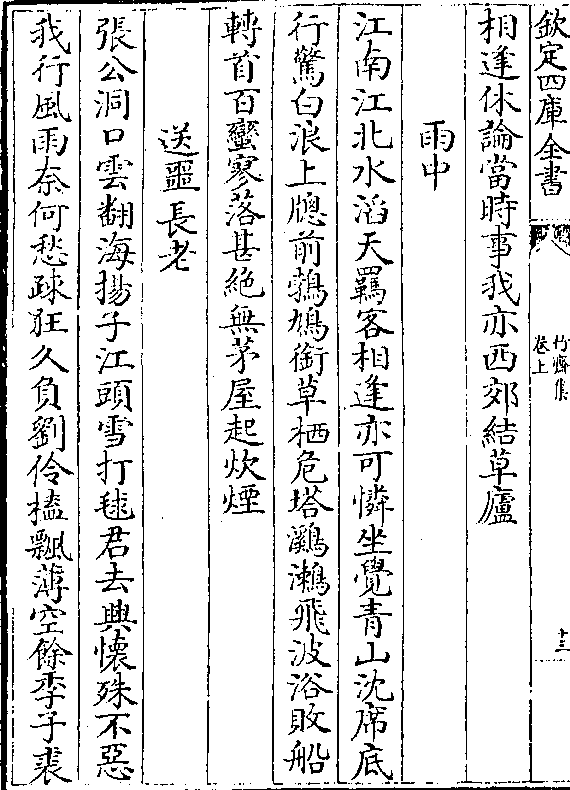 欽定四庫全書
竹齋集
卷上
十三
相逢休論當時事我亦西郊結草廬
雨中
江南江北水滔天羈客相逢亦可憐坐覺青山沈席底
行驚白浪上牕前鵓鳩銜草栖危塔鸂鶒飛波浴敗船
轉首百蠻寥落甚絶無茅屋起炊煙
送噩長老
張公洞口雲翻海揚子江頭雪打毬君去興懷殊不惡
我行風雨奈何愁踈狂久負劉伶榼飄薄空餘季子裘